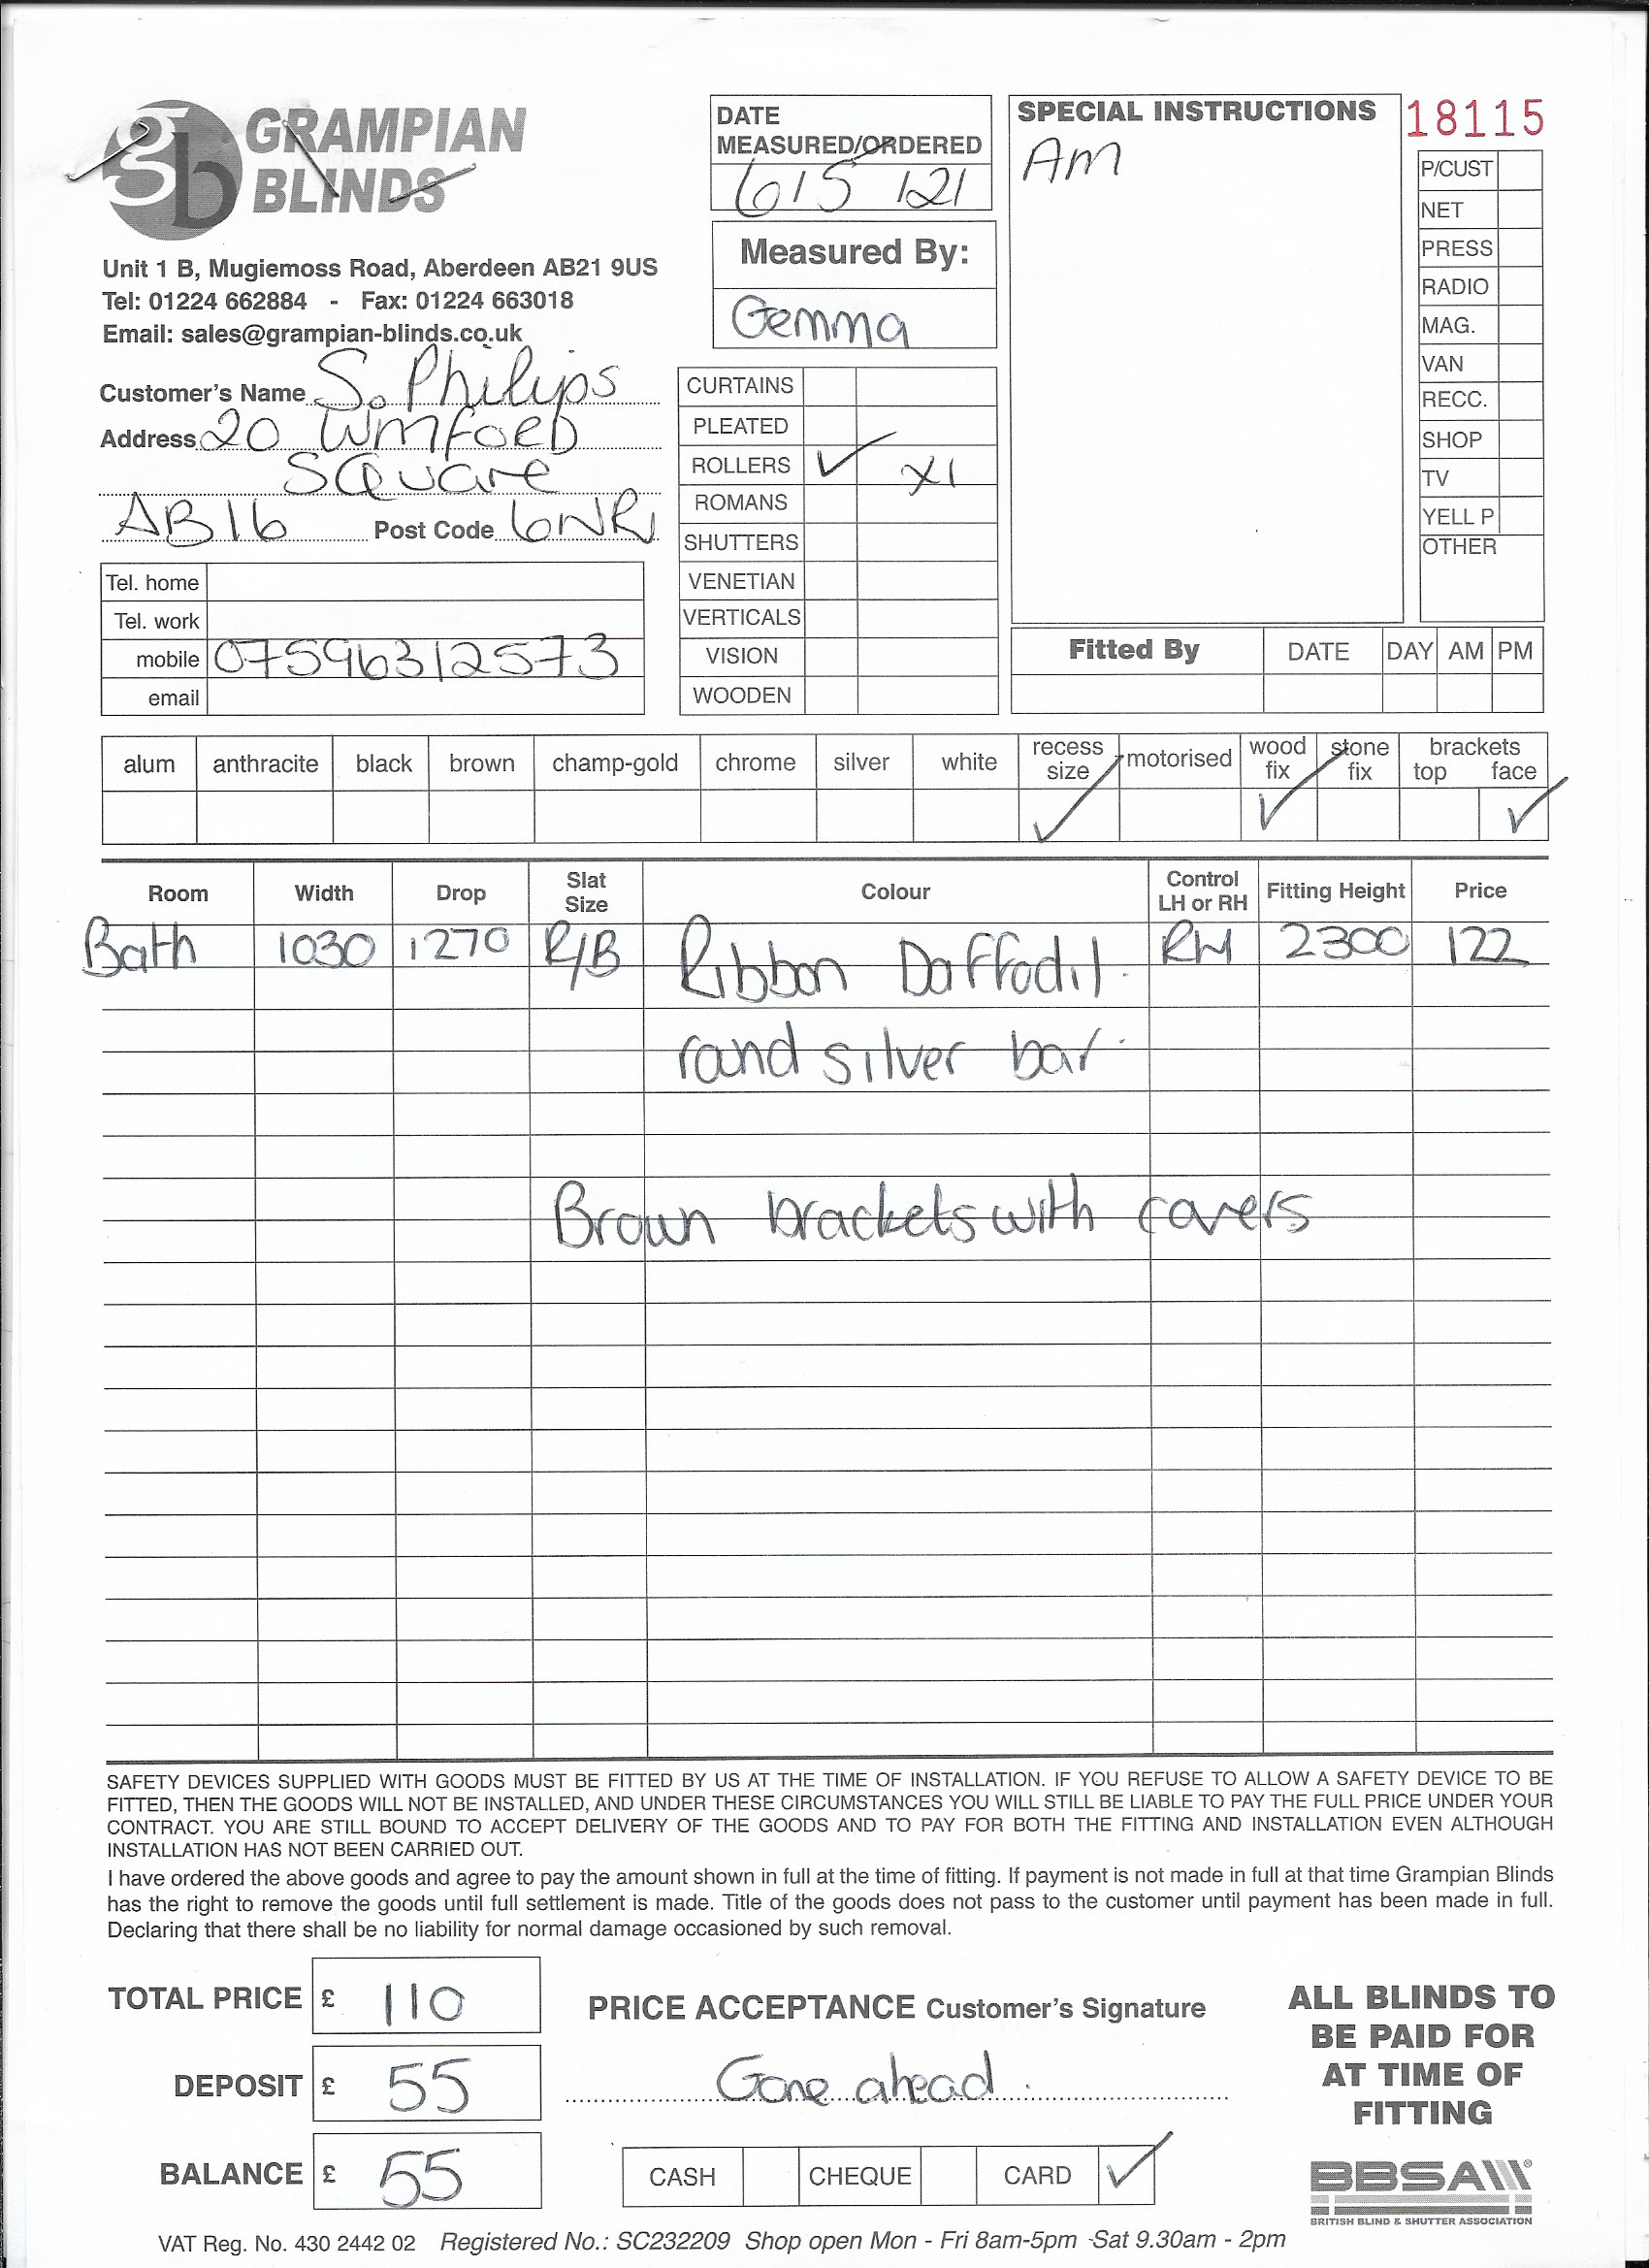 gb GRAMPIAN
BLINDS
Unit 1 B, Mugiemoss Road, Aberdeen AB21 9US
Tel: 01224 662884 - Fax: 01224 663018
Email: sales@grampian-blinds.co.uk
Customer's Name S. Philips
Address 20 Wmford
Square
AB16 Post Code 6NR
Tel. home
Tel. work
mobile 07596312573
email
DATE
MEASURED/ORDERED
6/5/21
Measured By:
Gemma
CURTAINS
PLEATED
ROLLERS ✓ x1
ROMANS
SHUTTERS
VENETIAN
VERTICALS
VISION
WOODEN
SPECIAL INSTRUCTIONS
Am
18115
P/CUST
NET
PRESS
RADIO
MAG.
VAN
RECC.
SHOP
TV
YELL P
OTHER
Fitted By DATE DAY AM PM
alum anthracite black brown champ-gold chrome silver white recess size motorised wood fix stone fix brackets top face
✓ ✓ ✓
Room Width Drop Slat Size Colour Control LH or RH Fitting Height Price
Bath 1030 1270 R/B Ribbon Daffodil RH 2300 122
round silver bar
Brown brackets with covers
SAFETY DEVICES SUPPLIED WITH GOODS MUST BE FITTED BY US AT THE TIME OF INSTALLATION. IF YOU REFUSE TO ALLOW A SAFETY DEVICE TO BE
FITTED, THEN THE GOODS WILL NOT BE INSTALLED, AND UNDER THESE CIRCUMSTANCES YOU WILL STILL BE LIABLE TO PAY THE FULL PRICE UNDER YOUR
CONTRACT. YOU ARE STILL BOUND TO ACCEPT DELIVERY OF THE GOODS AND TO PAY FOR BOTH THE FITTING AND INSTALLATION EVEN ALTHOUGH
INSTALLATION HAS NOT BEEN CARRIED OUT.
I have ordered the above goods and agree to pay the amount shown in full at the time of fitting. If payment is not made in full at that time Grampian Blinds
has the right to remove the goods until full settlement is made. Title of the goods does not pass to the customer until payment has been made in full.
Declaring that there shall be no liability for normal damage occasioned by such removal.
TOTAL PRICE £ 110
DEPOSIT £ 55
BALANCE £ 55
PRICE ACCEPTANCE Customer's Signature
Gone ahead.
CASH CHEQUE CARD ✓
ALL BLINDS TO
BE PAID FOR
AT TIME OF
FITTING
BBSA
BRITISH BLIND & SHUTTER ASSOCIATION
VAT Reg. No. 430 2442 02 Registered No.: SC232209 Shop open Mon - Fri 8am-5pm -Sat 9.30am - 2pm